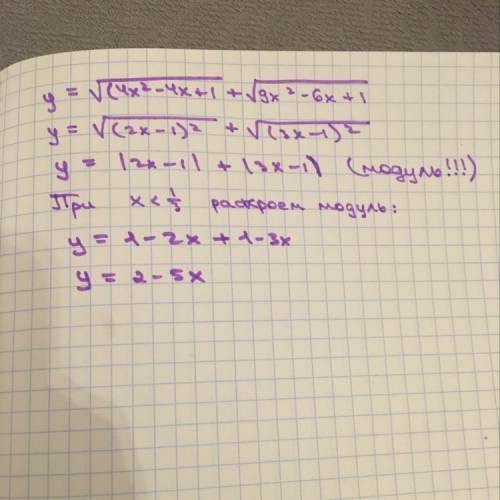 y = √(4x² - 4x + 1 + √9x² - 6x + 1
y = √(2x - 1)² + √(3x - 1)²
y = |2x - 1| + |3x - 1| (модуль!!!)
При x < 1/3 раскроем модуль:
y = 1 - 2x + 1 - 3x
y = 2 - 5x